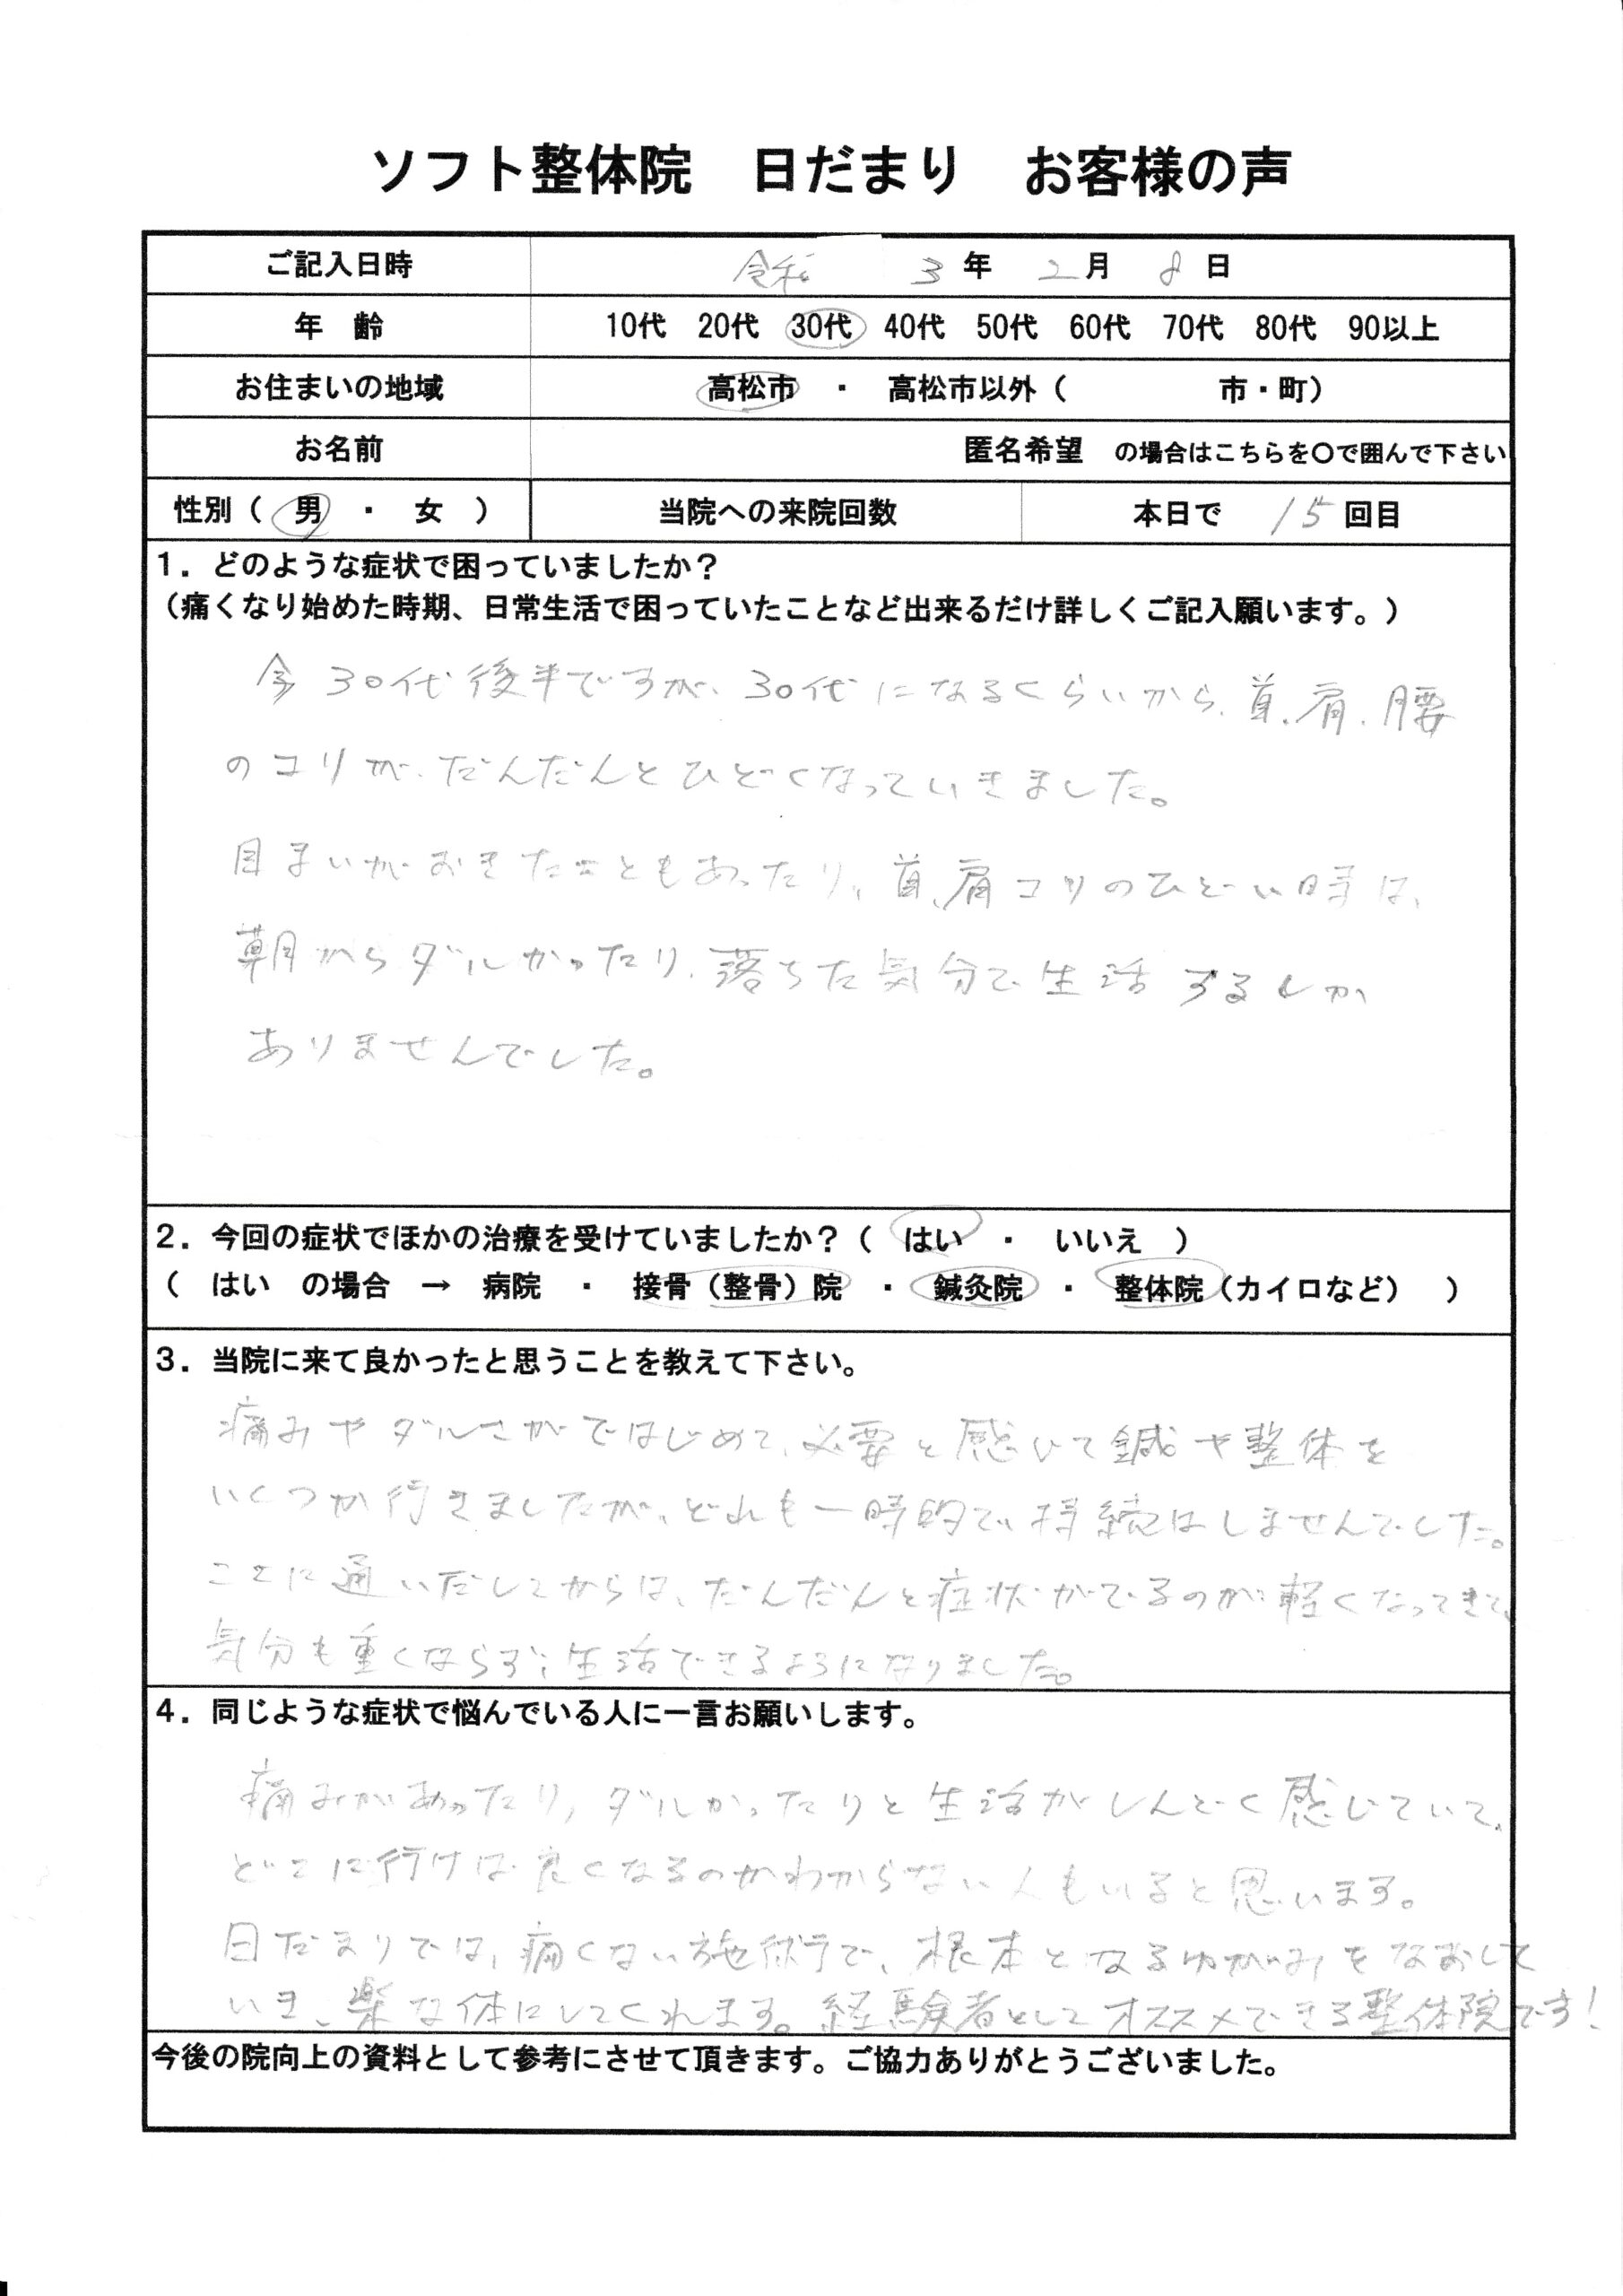 ソフト整体院 日だまり お客様の声
ご記入日時 令和 3 年 2 月 8 日
年 齢 10代 20代 30代 40代 50代 60代 70代 80代 90以上
お住まいの地域 高松市 ・ 高松市以外（ 市・町）
お名前 匿名希望 の場合はこちらを〇で囲んで下さい
性別（ 男 ・ 女 ） 当院への来院回数 本日で 15 回目
1．どのような症状で困っていましたか？
（痛くなり始めた時期、日常生活で困っていたことなど出来るだけ詳しくご記入願います。）
今30代後半ですが、30代になるくらいから、首、肩、腰
のコリが、だんだんとひどくなっていきました。
目まいがおきたこともあったり、首、肩コリのひどい時は、
朝からダルかったり、落ちた気分で生活するしか
ありませんでした。
2．今回の症状でほかの治療を受けていましたか？（ はい ・ いいえ ）
（ はい の場合 → 病院 ・ 接骨（整骨）院 ・ 鍼灸院 ・ 整体院（カイロなど） ）
3．当院に来て良かったと思うことを教えて下さい。
痛みやダルさがではじめて、必要と感じて鍼や整体を
いくつか行きましたが、どれも一時的で、持続はしませんでした。
ここに通いだしてからは、だんだんと症状がでるのが軽くなってきて、
気分も重くならず、生活できるようになりました。
4．同じような症状で悩んでいる人に一言お願いします。
痛みがあったり、ダルかったりと生活がしんどく感じていて、
どこに行けば良くなるのかわからない人もいると思います。
日だまりでは、痛くない施術で、根本となるゆがみをなおして
いき、楽な体にしてくれます。経験者としてオススメできる整体院です！
今後の院向上の資料として参考にさせて頂きます。ご協力ありがとうございました。